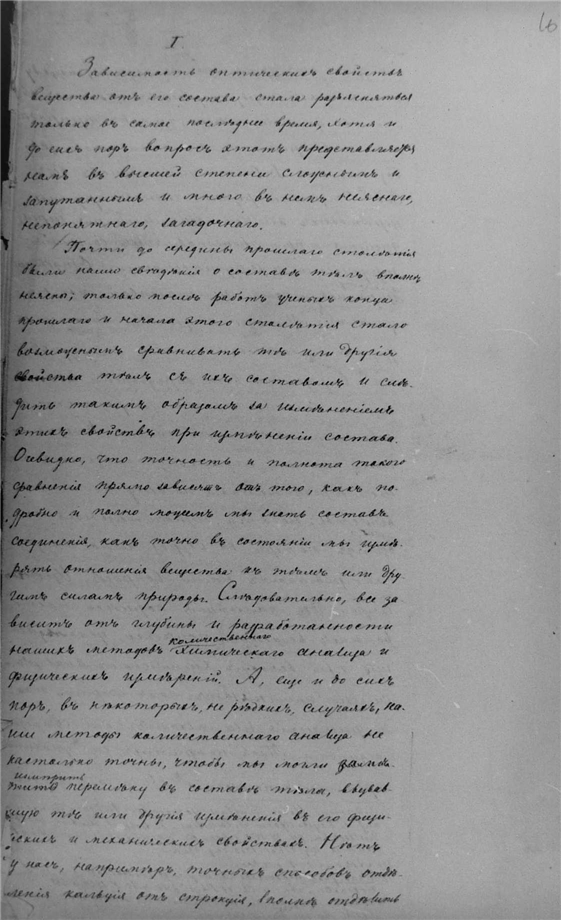 16
I.
Зависимость оптическихъ свойствъ
вещества отъ его состава стала разъясняться
только въ самое послѣднее время, хотя и
до сихъ поръ вопросъ этотъ представляется
намъ въ высшей степени сложнымъ и
запутаннымъ и много въ немъ неяснаго,
непонятнаго, загадочнаго.
Почти до середины прошлаго столѣтія
были наши свѣдѣнія о составѣ тѣлъ вполнѣ
неясны; только послѣ работъ ученыхъ конца
прошлаго и начала этого столѣтія стало
возможнымъ сравнивать тѣ или другія
свойства тѣлъ съ ихъ составомъ и слѣ-
дить такимъ образомъ за измѣненіемъ
этихъ свойствъ при измѣненіи состава.
Очевидно, что точность и полнота такого
сравненія прямо зависятъ отъ того, какъ по-
дробно и полно можемъ мы знать составъ
соединенія, какъ точно въ состояніи мы измѣ-
рять отношенія вещества къ тѣмъ или дру-
гимъ силамъ природы. Слѣдовательно, все за-
виситъ отъ глубины и разработанности
количественнаго
нашихъ методовъ химическаго анализа и
физическихъ измѣреній. А, еще и до сихъ
поръ, въ нѣкоторыхъ, не рѣдкихъ, случаяхъ, на-
ши методы количественнаго анализа не
настолько точны, чтобы мы могли
перемѣну въ составѣ тѣла, вызвав-
шую тѣ или другія измѣненія въ его физи-
ческихъ и механическихъ свойствахъ. Нѣтъ
у насъ, напримѣръ, точныхъ способовъ отдѣ-
ленія кальція отъ стронція, вполнѣ отдѣлить